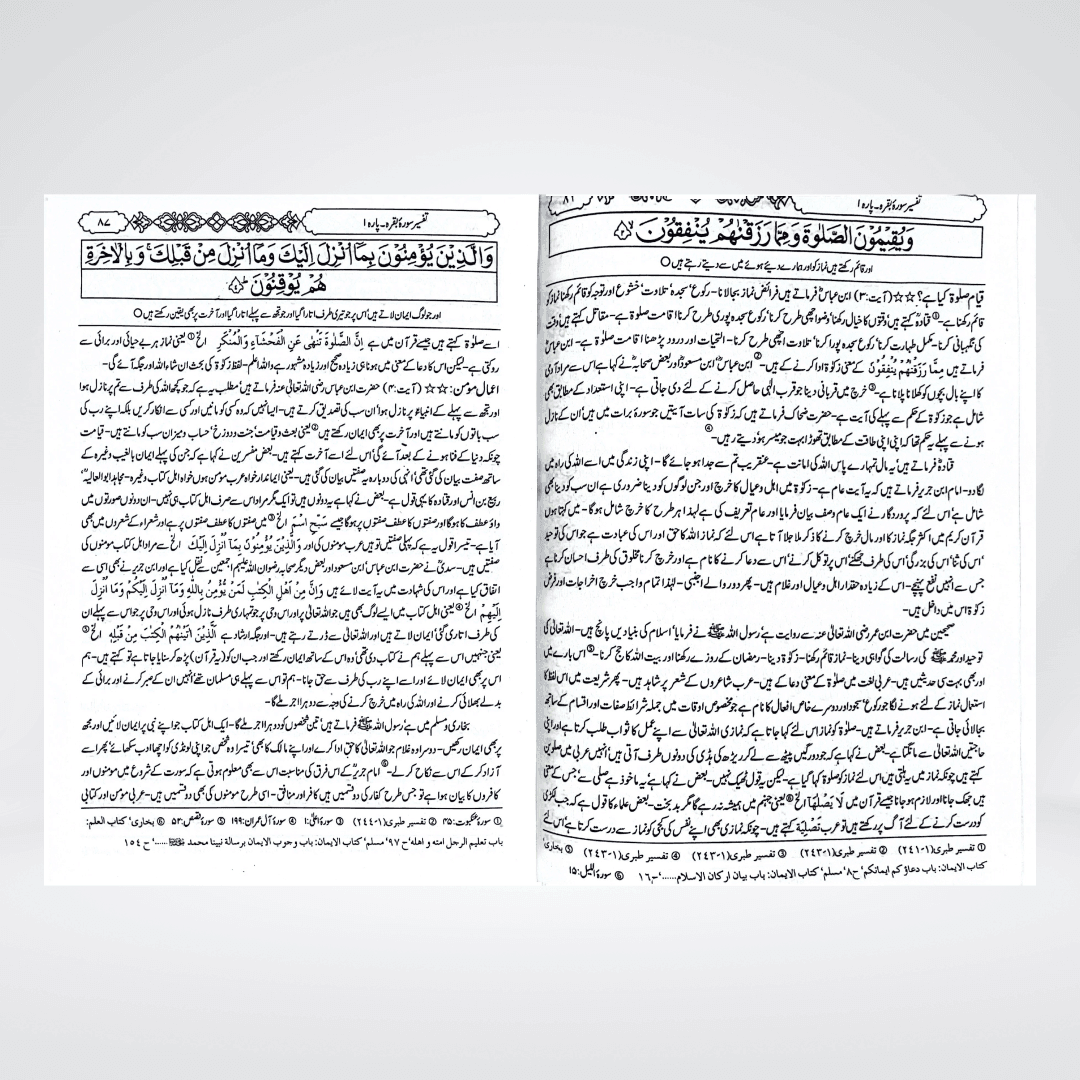 تفسیر سورۂ بقرہ۔ پارہ ۱
۸۶
وَيُقِيمُونَ الصَّلٰوةَ وَمِمَّا رَزَقْنٰهُمْ يُنْفِقُوْنَ ۝۳
اور قائم رکھتے ہیں نماز کو اور ہمارے دیئے ہوئے میں سے دیتے رہتے ہیں ○
قیام صلوٰۃ کیا ہے؟ ☆☆ (آیت:۳) ابن عباسؓ فرماتے ہیں فرائض نماز بجا لانا۔ رکوع‘ سجدہ‘ تلاوت‘ خشوع اور توجہ کو قائم رکھنا نماز کو
قائم رکھنا ہے۔① قتادہؒ کہتے ہیں‘ وقتوں کا خیال رکھنا‘ وضو اچھی طرح کرنا‘ رکوع سجدہ پوری طرح کرنا اقامت صلوٰۃ ہے۔ مقاتل کہتے ہیں‘ وقت
کی نگہبانی کرنا۔ مکمل طہارت کرنا‘ رکوع‘ سجدہ پورا کرنا‘ تلاوت اچھی طرح کرنا۔ التحیات اور درود پڑھنا اقامت صلوٰۃ ہے۔ ابن عباسؓ
فرماتے ہیں مِمَّا رَزَقْنٰهُمْ يُنْفِقُوْنَ کے معنی زکوٰۃ ادا کرنے کے ہیں۔② ابن عباسؓ‘ ابن مسعودؓ اور بعض صحابہؓ نے کہا ہے اس سے مراد آدمی
کا اپنے بال بچوں کو کھلانا پلانا ہے۔③ خرچ میں قربانی دینا جو قرب الٰہی حاصل کرنے کے لئے دی جاتی ہے۔ اپنی استعداد کے مطابق بھی
شامل ہے جو زکوٰۃ کے حکم سے پہلے کی آیت ہے۔ حضرت ضحاک فرماتے ہیں کہ زکوٰۃ کی سات آیتیں جو سورۂ برات میں ہیں‘ ان کے نازل
ہونے سے پہلے یہ حکم تھا کہ اپنی اپنی طاقت کے مطابق تھوڑا بہت جو میسر ہو‘ دیتے رہیں۔④
قتادہؒ فرماتے ہیں‘ یہ مال تمہارے پاس اللہ کی امانت ہے۔ عنقریب تم سے جدا ہو جائے گا۔ اپنی زندگی میں اسے اللہ کی راہ میں
لگا دو۔ امام ابن جریر فرماتے ہیں کہ یہ آیت عام ہے۔ زکوٰۃ میں اہل و عیال کا خرچ اور جن لوگوں کو دینا ضروری ہے ان سب کو دینا بھی
شامل ہے‘ اس لئے کہ پروردگار نے ایک عام وصف بیان فرمایا اور عام تعریف کی ہے لہٰذا ہر طرح کا خرچ شامل ہوگا۔ میں کہتا ہوں
قرآن کریم میں اکثر جگہ نماز کا اور مال خرچ کرنے کا ذکر ملا جلا آتا ہے اس لئے کہ نماز اللہ کا حق اور اس کی عبادت ہے جو اس کی توحید
‘اس کی ثنا‘ اس کی بزرگی‘ اس کی طرف جھکنے‘ اس پر توکل کرنے‘ اس سے دعا کرنے کا نام ہے اور خرچ کرنا مخلوق کی طرف احسان کرنا ہے
جس سے انہیں نفع پہنچے۔ اس کے زیادہ حقدار اہل و عیال اور غلام ہیں۔ پھر دور والے اجنبی۔ لہٰذا تمام واجب خرچ اخراجات اور فرض
زکوٰۃ اس میں داخل ہیں۔
صحیحین میں حضرت ابن عمر رضی اللہ تعالیٰ عنہ سے روایت ہے‘ رسول اللہ ﷺ نے فرمایا‘ اسلام کی بنیادیں پانچ ہیں۔ اللہ تعالیٰ کی
توحید اور محمد ﷺ کی رسالت کی گواہی دینا۔ نماز قائم رکھنا۔ زکوٰۃ دینا۔ رمضان کے روزے رکھنا اور بیت اللہ کا حج کرنا۔⑤ اس بارے میں
اور بھی بہت سی حدیثیں ہیں۔ عربی لغت میں صلوٰۃ کے معنی دعا کے ہیں۔ عرب شاعروں کے شعر اس پر شاہد ہیں۔ پھر شریعت میں اس لفظ کا
استعمال نماز کے لئے ہونے لگا جو رکوع‘ سجود اور دوسرے خاص افعال کا نام ہے جو مخصوص اوقات میں جملہ شرائط صفات اور اقسام کے ساتھ
بجالائی جاتی ہے۔ ابن جریر فرماتے ہیں۔ صلوٰۃ کو نماز اس لئے کہا جاتا ہے کہ نمازی اللہ تعالیٰ سے اپنے عمل کا ثواب طلب کرتا ہے اور اپنی
حاجتیں اللہ تعالیٰ سے مانگتا ہے۔ بعض نے کہا ہے کہ جو دو رگیں پیٹھ سے لے کر ریڑھ کی ہڈی کی دونوں طرف آتی ہیں‘ انہیں عربی میں صلوین
کہتے ہیں چونکہ نماز میں یہ ہلتی ہیں اس لئے نماز کو صلوٰۃ کہا گیا ہے۔ لیکن یہ قول ٹھیک نہیں۔ بعض نے کہا ہے‘ یہ ماخوذ ہے صلی سے‘ جس کے معنی
ہیں چپک جانا اور لازم ہو جانا جیسے قرآن میں لَا يَصْلٰهَآ الخ⑥ یعنی جہنم میں ہمیشہ نہ رہے گا مگر بدبخت۔ بعض علماء کا قول ہے کہ جب لکڑی
کو درست کرنے کے لئے آگ پر رکھتے ہیں تو عرب تَصْلِيَة کہتے ہیں۔ چونکہ نمازی بھی اپنے نفس کی کجی کو نماز سے درست کرتا ہے‘ اس لئے
① تفسیر طبری (۱-۲۴۱) ② تفسیر طبری (۱-۲۴۳) ③ تفسیر طبری (۱-۲۴۳) ④ تفسیر طبری (۱-۲۴۳) ⑤ بخاری‘
کتاب الایمان: باب دعاؤکم ایمانکم‘ ح ۸‘ مسلم‘ کتاب الایمان: باب بیان ارکان الاسلام......‘ ح ۱۶ ⑥ سورۂ اللیل: ۱۵
تفسیر سورۂ بقرہ۔ پارہ ۱
۸۷
وَالَّذِيْنَ يُؤْمِنُوْنَ بِمَآ اُنْزِلَ اِلَيْكَ وَمَآ اُنْزِلَ مِنْ قَبْلِكَ ۚ وَبِالْاٰخِرَةِ
هُمْ يُوْقِنُوْنَ ۝۴
اور جو لوگ ایمان لاتے ہیں‘ اس پر جو تیری طرف اتارا گیا اور جو تجھ سے پہلے اتارا گیا اور آخرت پر بھی یقین رکھتے ہیں ○
اسے صلوٰۃ کہتے ہیں جیسے قرآن میں ہے اِنَّ الصَّلٰوةَ تَنْهٰى عَنِ الْفَحْشَآءِ وَالْمُنْكَرِ الخ① یعنی نماز ہر بے حیائی اور برائی سے
روکتی ہے۔ لیکن اس کا دعا کے معنی میں ہونا ہی زیادہ صحیح اور زیادہ مشہور ہے واللہ اعلم۔ لفظ زکوٰۃ کی بحث ان شاء اللہ اور جگہ آئے گی۔
اعمال مومن: ☆☆ (آیت:۴) حضرت ابن عباس رضی اللہ تعالیٰ عنہ فرماتے ہیں‘ مطلب یہ ہے کہ جو کچھ اللہ کی طرف سے تم پر نازل ہوا
اور تجھ سے پہلے کے انبیاءؑ پر نازل ہوا‘ ان سب کی تصدیق کرتے ہیں۔ ایسا نہیں کہ وہ کسی کو مانیں اور کسی سے انکار کریں بلکہ اپنے رب کی
سب باتوں کو مانتے ہیں اور آخرت پر بھی ایمان رکھتے ہیں‘② یعنی بعث و قیامت‘ جنت و دوزخ‘ حساب و میزان سب کو مانتے ہیں۔ قیامت
چونکہ دنیا کے فنا ہونے کے بعد آئے گی‘ اس لئے اسے آخرت کہتے ہیں۔ بعض مفسرین نے کہا ہے کہ جن کی پہلے ایمان بالغیب وغیرہ کے
ساتھ صفت بیان کی گئی تھی‘ انہی کی دوبارہ یہ صفتیں بیان کی گئی ہیں۔ یعنی ایماندار خواہ عرب مومن ہوں خواہ اہل کتاب وغیرہ۔ مجاہد‘ ابو العالیہؒ‘
ربیع بن انس اور قتادہ کا یہی قول ہے۔ بعض نے کہا ہے یہ دونوں ہیں تو ایک مگر مراد اس سے صرف اہل کتاب ہی نہیں۔ ان دونوں صورتوں میں
واؤ عطف کا ہوگا اور صفتوں کا عطف صفتوں پر ہوگا جیسے سَبِّحِ اسْمَ الخ③ میں صفتوں کا عطف صفتوں پر ہے اور شعراء کے شعروں میں بھی
آیا ہے۔ تیسرا قول یہ ہے کہ پہلی صفتیں تو ہیں عرب مومنوں کی اور وَالَّذِيْنَ يُؤْمِنُوْنَ بِمَآ اُنْزِلَ اِلَيْكَ الخ سے مراد اہل کتاب مومنوں کی
صفتیں ہیں۔ سدیؒ نے حضرت ابن عباس‘ ابن مسعود اور بعض دیگر صحابہ رضوان اللہ علیہم اجمعین نے نقل کیا ہے اور ابن جریر نے بھی اسی سے
اتفاق کیا ہے اور اس کی شہادت میں یہ آیت لائے ہیں وَاِنَّ مِنْ اَهْلِ الْكِتٰبِ لَمَنْ يُّؤْمِنُ بِاللّٰهِ وَمَآ اُنْزِلَ اِلَيْكُمْ وَمَآ اُنْزِلَ
اِلَيْهِمْ الخ④ یعنی اہل کتاب میں ایسے لوگ بھی ہیں جو اللہ تعالیٰ پر اور اس وحی پر جو تمہاری طرف نازل ہوئی اور اس وحی پر جو اس سے پہلے ان
کی طرف اتاری گئی‘ ایمان لاتے ہیں اور اللہ تعالیٰ سے ڈرتے رہتے ہیں۔ اور جگہ ارشاد ہے اَلَّذِيْنَ اٰتَيْنٰهُمُ الْكِتٰبَ مِنْ قَبْلِهٖ الخ⑤
یعنی جنہیں اس سے پہلے ہم نے کتاب دی تھی‘ وہ اس کے ساتھ ایمان رکھتے اور جب ان کو (یہ قرآن) پڑھ کر سنایا جاتا ہے تو کہتے ہیں۔ ہم
اس پر بھی ایمان لائے اور اسے اپنے رب کی طرف سے حق جانا۔ ہم تو اس سے پہلے ہی مسلمان تھے‘ انہیں ان کے صبر کرنے اور برائی کے
بدلے بھلائی کرنے اور اللہ کی راہ میں خرچ کرنے کی وجہ سے دوہرا اجر ملے گا۔
بخاری و مسلم میں ہے‘ رسول اللہ ﷺ فرماتے ہیں‘ تین شخصوں کو دوہرا اجر ملے گا۔ ایک اہل کتاب جو اپنے نبی پر ایمان لائیں اور مجھ
پر بھی ایمان رکھیں۔ دوسرا وہ غلام جو اللہ تعالیٰ کا حق ادا کرے اور اپنے مالک کا بھی‘ تیسرا وہ شخص جو اپنی لونڈی کو اچھا ادب سکھائے‘ پھر اسے
آزاد کر کے اس سے نکاح کر لے۔⑥ امام جریرؒ کے اس فرق کی مناسبت اس سے بھی معلوم ہوتی ہے کہ سورت کے شروع میں مومنوں اور
کافروں کا بیان ہوا ہے تو جس طرح کفار کی دو قسمیں ہیں‘ کافر اور منافق۔ اسی طرح مومنوں کی بھی دو قسمیں ہیں۔ عربی مومن اور کتابی
① سورۂ عنکبوت: ۴۵ ② تفسیر طبری (۱-۲۴۴) ③ سورۂ اعلیٰ: ۱ ④ سورۂ آل عمران: ۱۹۹ ⑤ سورۂ قصص: ۵۲ ⑥ بخاری‘ کتاب العلم:
باب تعلیم الرجل امته و اهله‘ ح ۹۷‘ مسلم‘ کتاب الایمان: باب وجوب الایمان برسالة نبینا محمد ﷺ ......‘ ح ۱۵۴